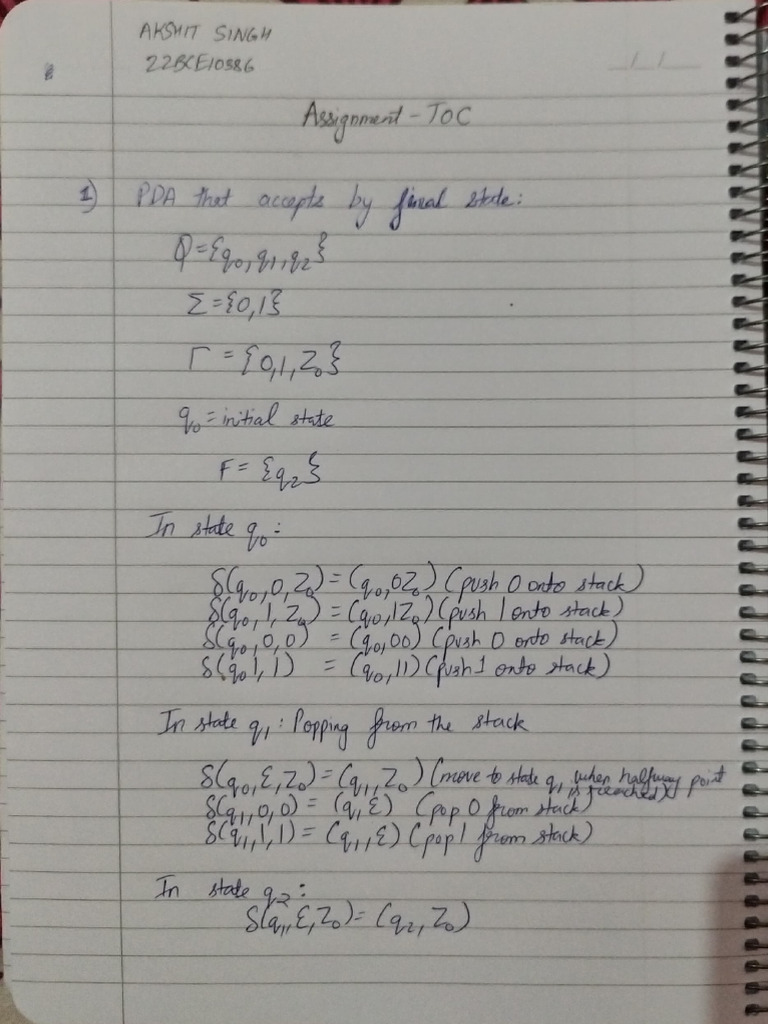 AKSHIT SINGH
22BCE10386
Assignment - TOC
1) PDA that accepts by final state:
Q={q₀,q₁,q₂}
Σ={0,1}
Γ={0,1,Z₀}
q₀=initial state
F={q₂}
In state q₀:
δ(q₀,0,Z₀)=(q₀,0Z₀) (push 0 onto stack)
δ(q₀,1,Z₀)=(q₀,1Z₀) (push 1 onto stack)
δ(q₀,0,0) =(q₀,00) (push 0 onto stack)
δ(q₀1,1) =(q₀,11) (push 1 onto stack)
In state q₁: Popping from the stack
δ(q₀,ε,Z₀)=(q₁,Z₀) (move to state q₁ when halfway point
is reached)
δ(q₁,0,0)=(q,ε) (pop 0 from stack)
δ(q₁,1,1)=(q₁,ε) (pop 1 from stack)
In state q₂:
δ(q₁,ε,Z₀)=(q₂,Z₀)